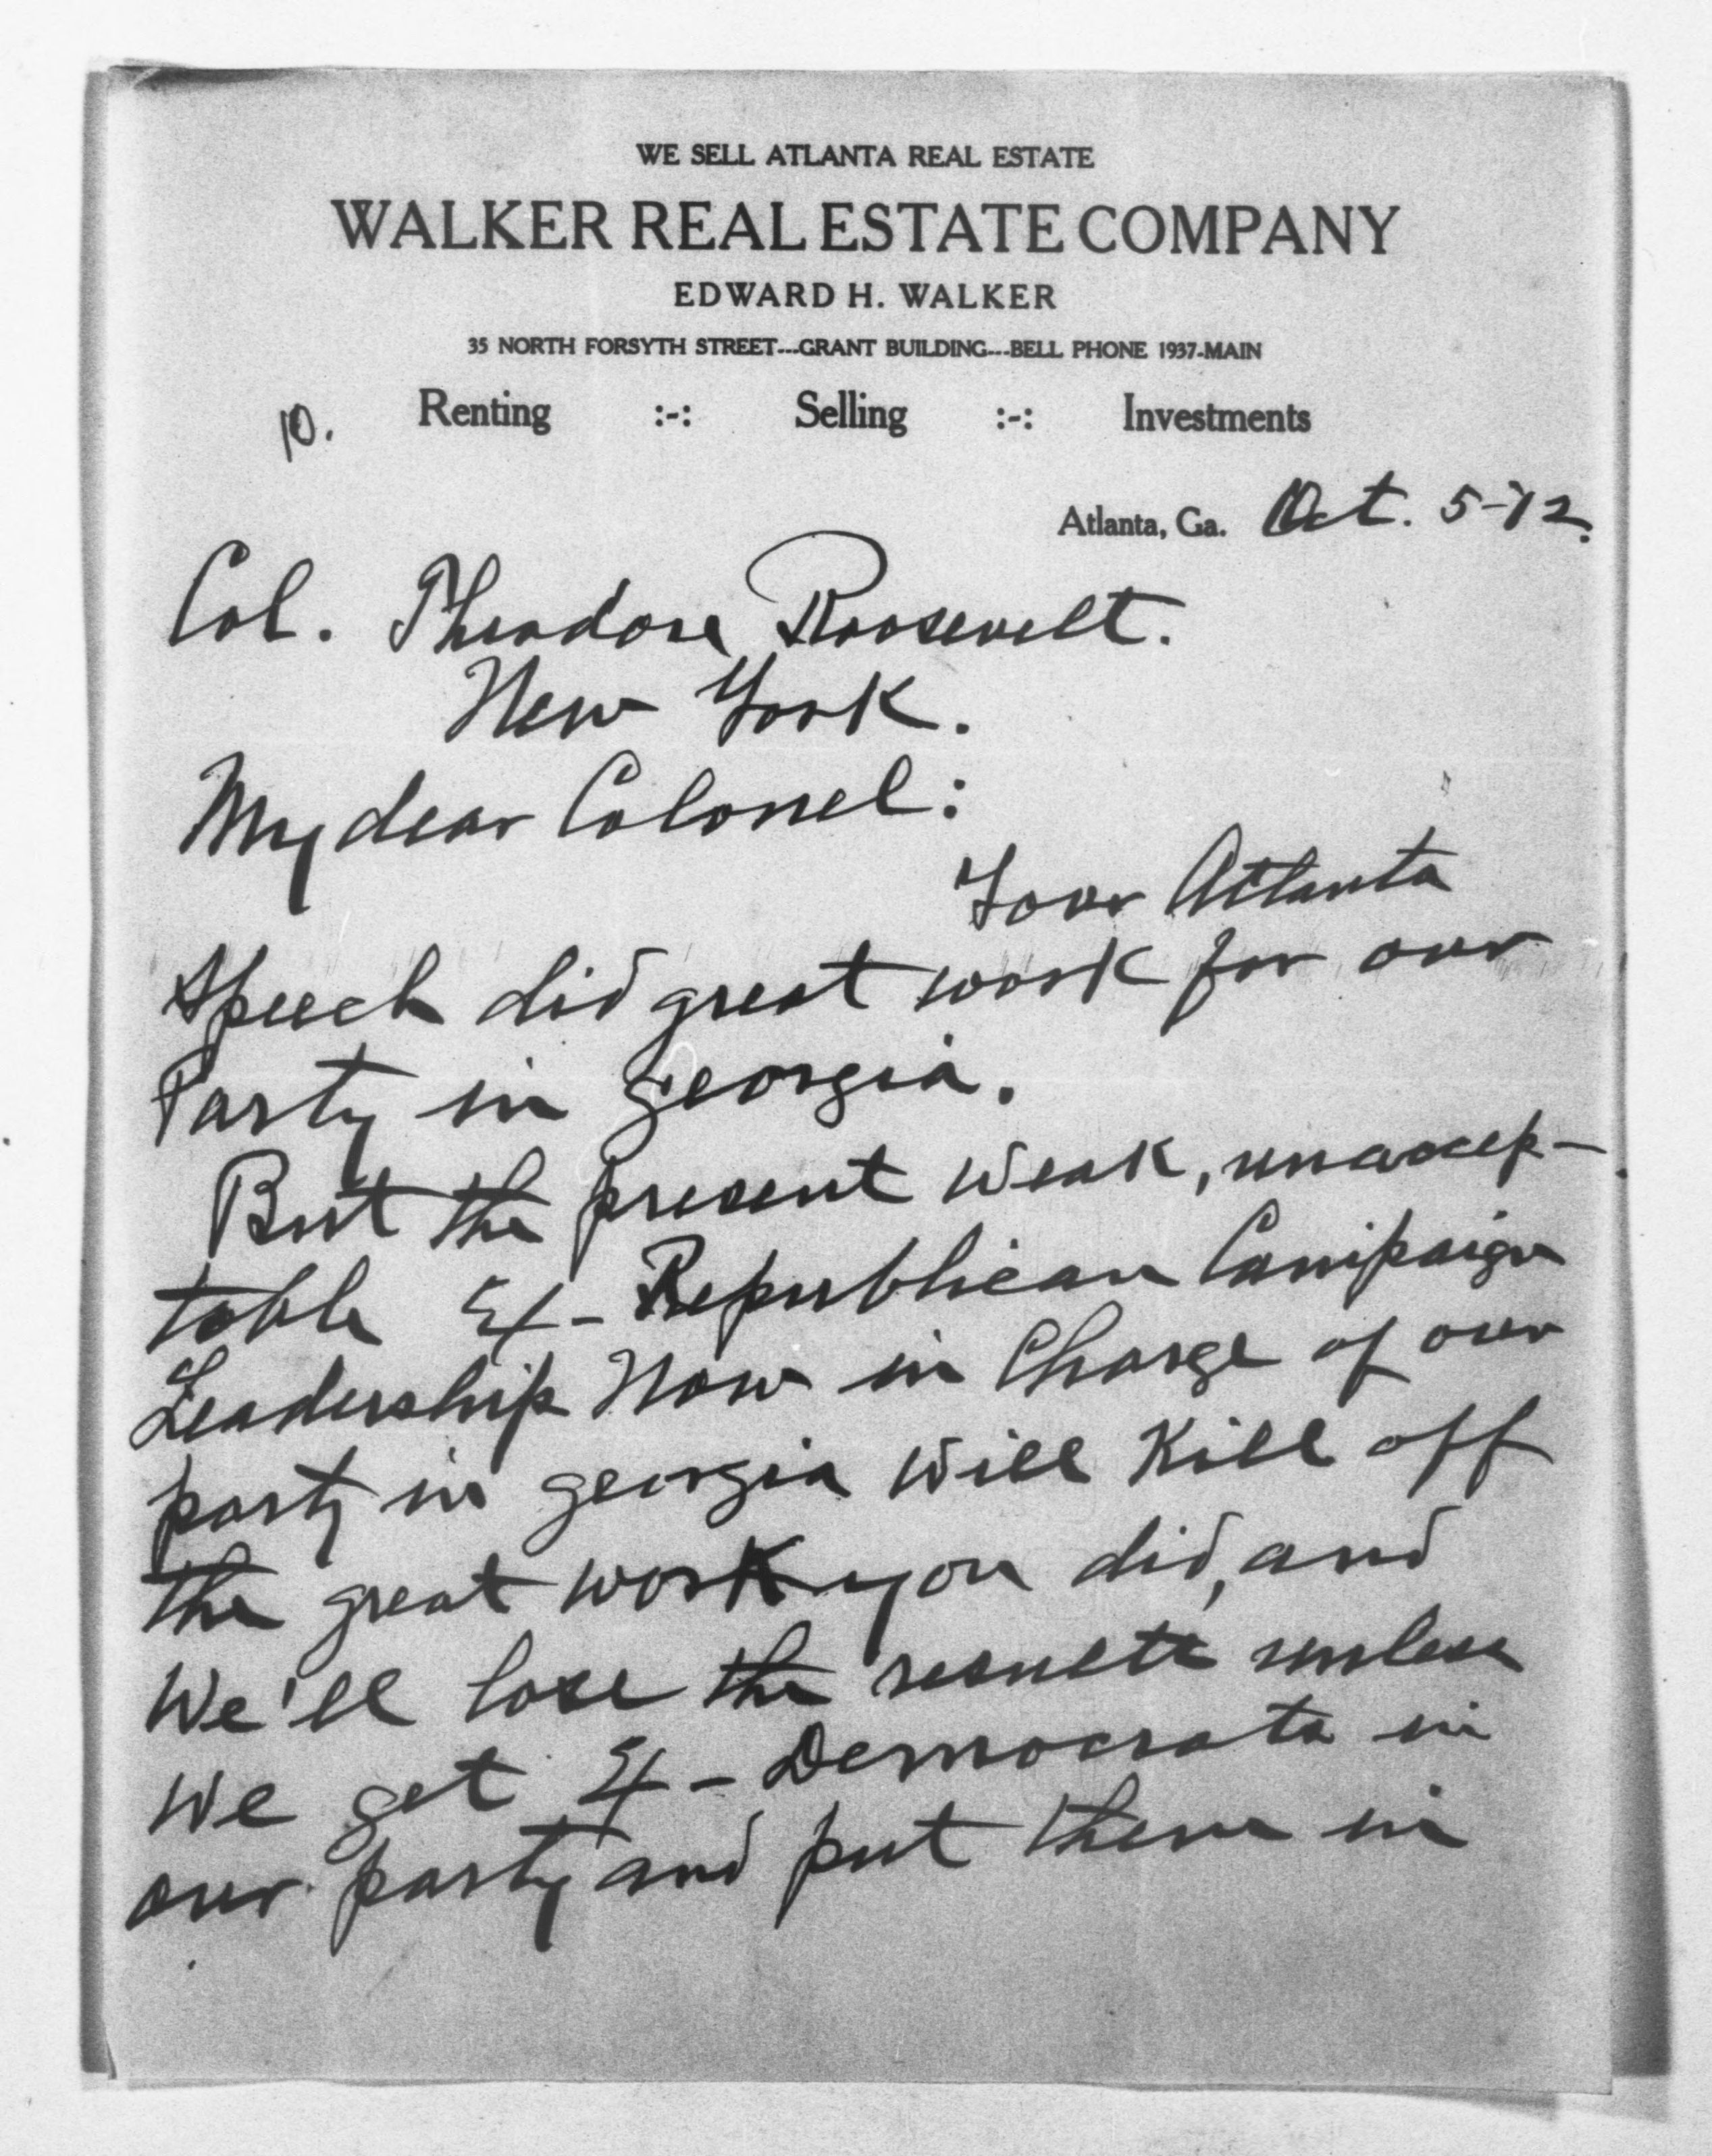 WE SELL ATLANTA REAL ESTATE
WALKER REAL ESTATE COMPANY
EDWARD H. WALKER
35 NORTH FORSYTH STREET---GRANT BUILDING---BELL PHONE 1937-MAIN
10. Renting :-: Selling :-: Investments
Atlanta, Ga. Oct. 5-'12.
Col. Theodore Roosevelt.
New York.
My dear Colonel:
Your Atlanta
Speech did great work for our
Party in Georgia.
But the present weak, unaccep-
table Ex-Republican Campaign
Leadership Now in Charge of our
party in Georgia will Kill off
the great work you did, and
We'll lose the results unless
We get Ex-Democrats in
our party and put them in